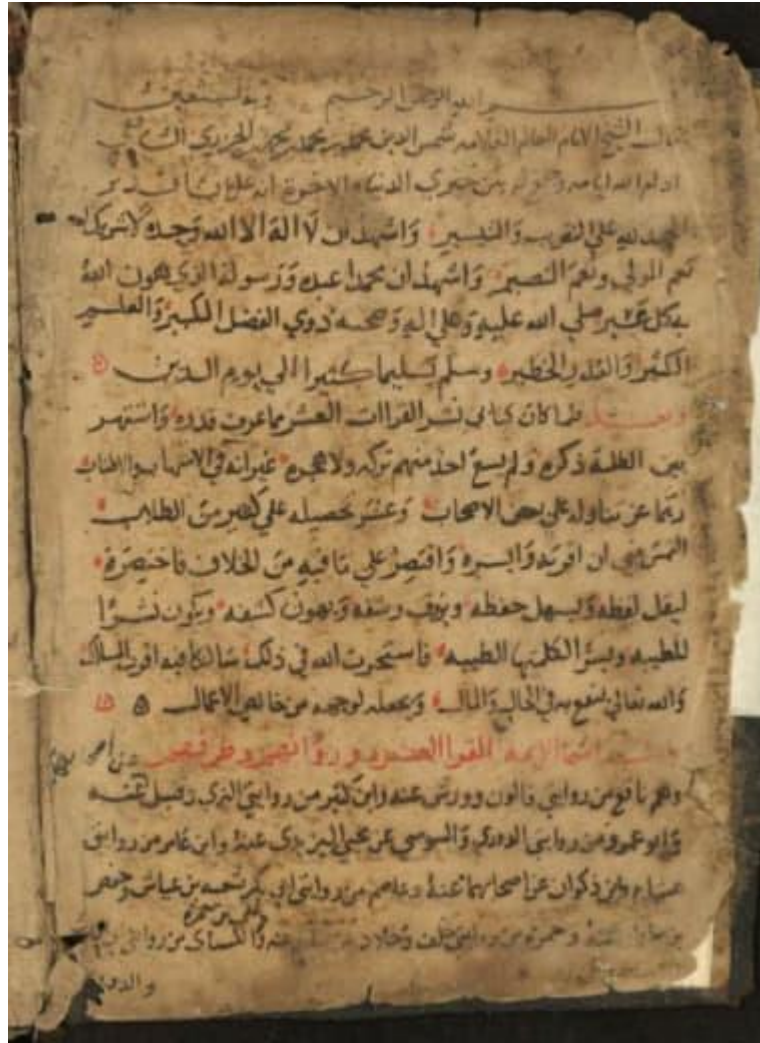 بسم الله الرحمن الرحيم وبه نستعين
قال الشيخ الامام العالم العلامه شمس الدين محمد بن محمد بن محمد بن الجزري الشافعي
ادام الله ايامه
الحمد لله علي التقريب والتيسير واشهد ان لا اله الا الله وحده لا شريك له
نعم المولي ونعم النصير واشهد ان محمدا عبده ورسوله الذي يهون الله
به كل عسير صلي الله عليه وعلي اله وصحبه ذوي الفضل الكبير والعلم
الكثير والقدر الخطير وسلم تسليما كثيرا الي يوم الدين
وبعد فلما كان كتابي نشر القراات العشر مما عرف قدره واشتهر
بين الطلبة ذكره ولم يسع احد منهم تركه ولا هجره غير انه في الاسهاب والاطناب
ربما عز تناوله علي بعض الاصحاب وعسر تحصيله علي كثير من الطلاب
التمس مني ان اقربه وايسره واقتصر علي ما فيه من الخلاف فاختصره
ليقل لفظه ويسهل حفظه ويؤف رشفه ويهون كشفه ويكون نشرا
للطيبه وبسرا لكلمتها الطيبه فاستخرت الله في ذلك سالكا فيه اقرب المسالك
والله تعالي ينفع به في الحال والمال ويجعله لوجهه من خالص الاعمال
اسما الايمه القرا العشره ورواتهم وطرقهم
وهم نافع من روايتي قالون وورش عنه وابن كثير من روايتي البزي وقنبل عنه
وابو عمرو من روايتي الدوري والسوسي عن يحيي اليزيدي عنه وابن عامر من روايتي
هشام وابن ذكوان عن اصحابهما عنه وعاصم من روايتي ابي بكر شعبه بن عياش وحفص
بن سليمان عنه وحمزه من روايتي خلف وخلاد عن سليم عنه والكساي من روايتي
والدوري